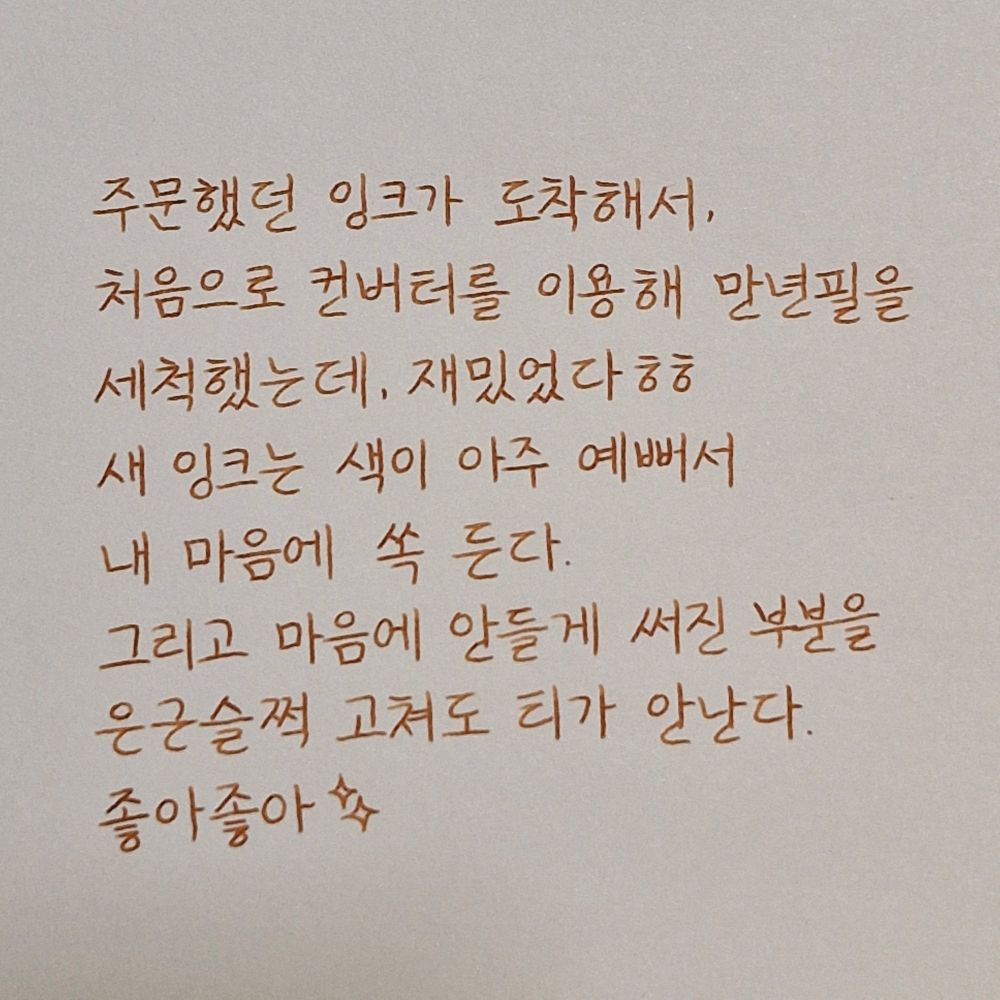 주문했던 잉크가 도착해서,
처음으로 컨버터를 이용해 만년필을
세척했는데, 재밌었다ㅎㅎ
새 잉크는 색이 아주 예뻐서
내 마음에 쏙 든다.
그리고 마음에 안들게 써진 부분을
은근슬쩍 고쳐도 티가 안난다.
좋아좋아✨